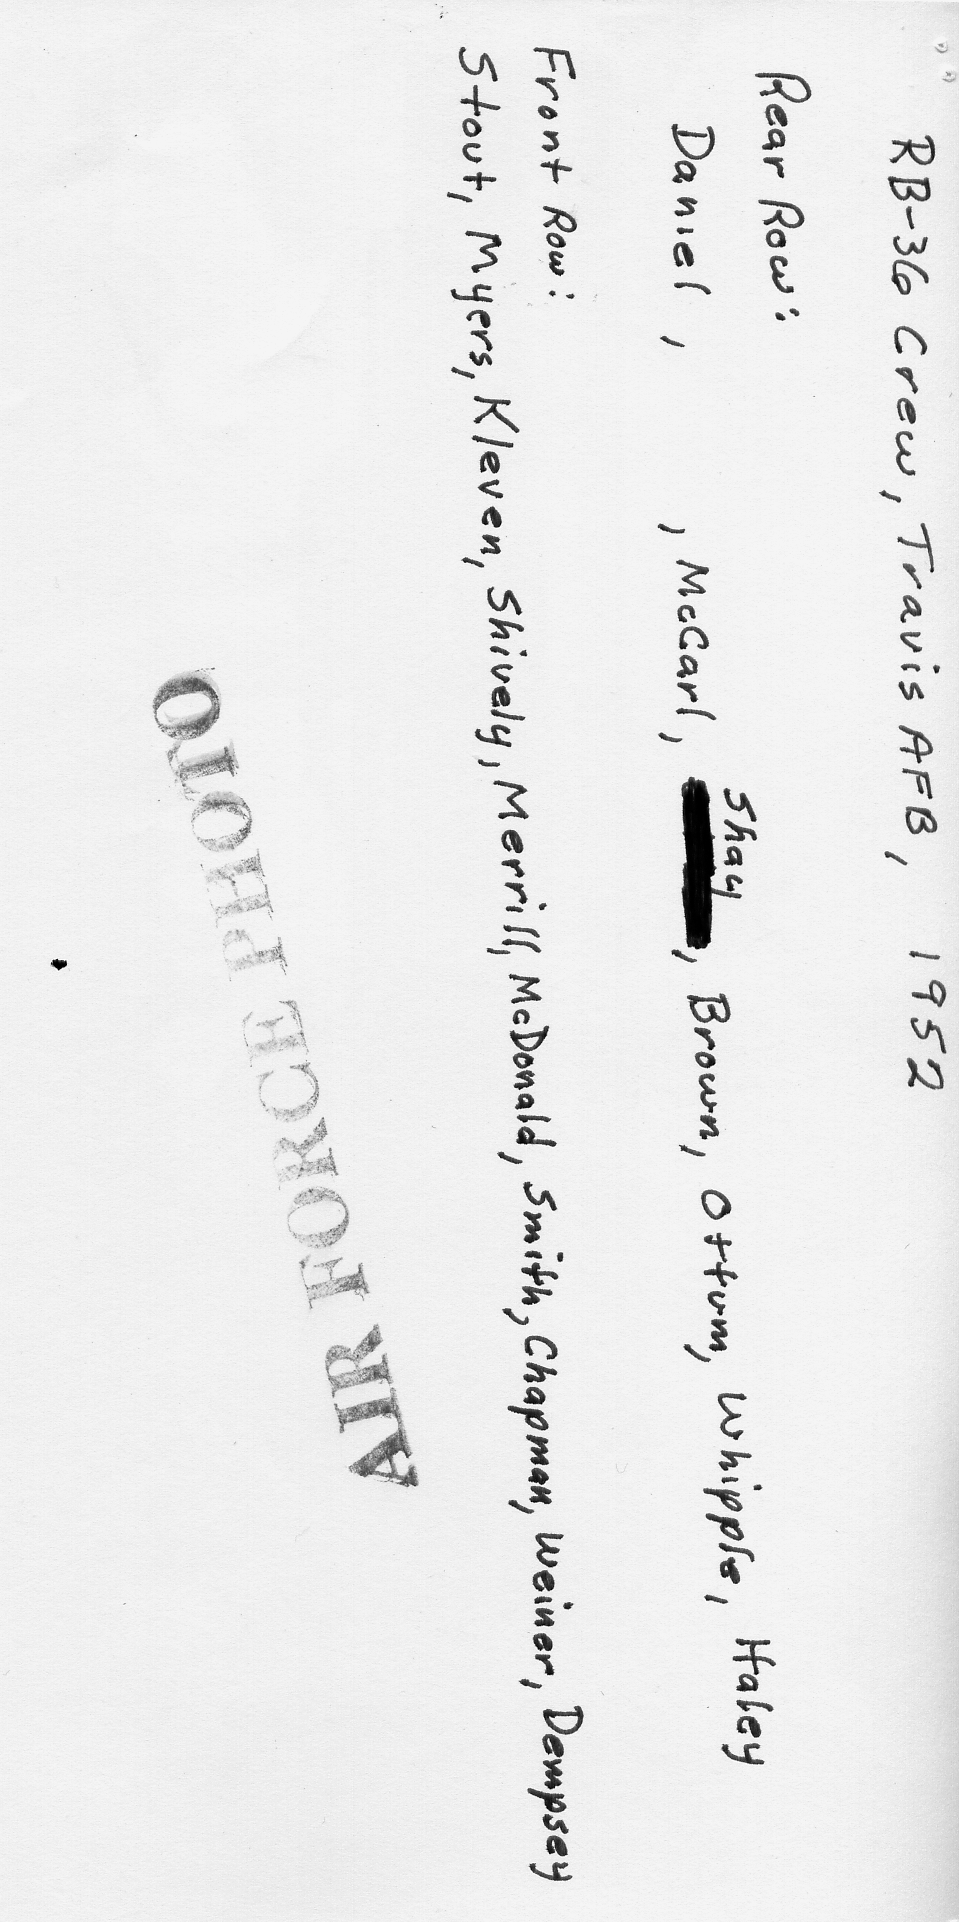 RB-36 Crew, Travis AFB, 1952
Rear Row:
Shay
Daniel, , McCarl, , Brown, Ottum, Whipple, Haley
Front Row:
Stout, Myers, Kleven, Shively, Merrill, McDonald, Smith, Chapman, Weiner, Dempsey
AIR FORCE PHOTO